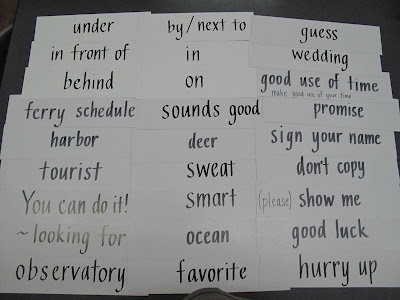 under
in front of
behind
ferry schedule
harbor
tourist
You can do it!
~looking for
observatory
by/next to
in
on
sounds good
deer
sweat
smart
ocean
favorite
guess
wedding
good use of time
make good use of your time
promise
sign your name
don't copy
(please) show me
good luck
hurry up